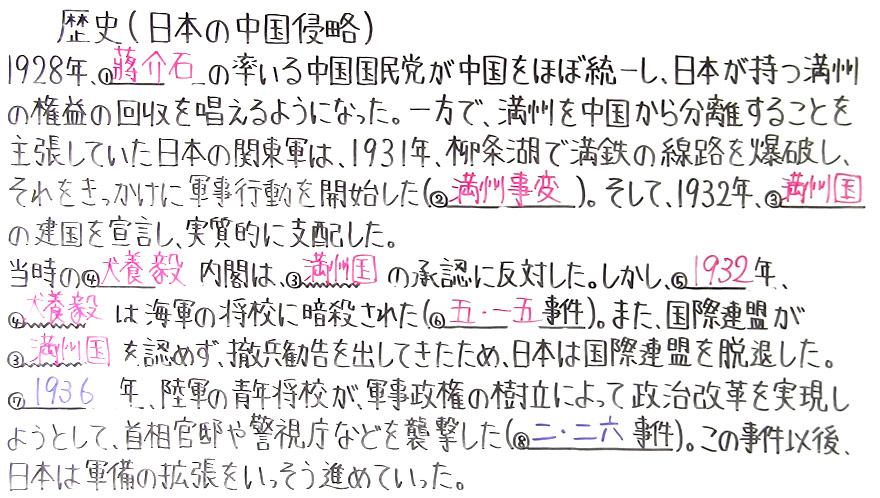 歴史(日本の中国侵略)
1928年、①蔣介石の率いる中国国民党が中国をほぼ統一し、日本が持つ満州
の権益の回収を唱えるようになった。一方で、満州を中国から分離することを
主張していた日本の関東軍は、1931年、柳条湖で満鉄の線路を爆破し、
それをきっかけに軍事行動を開始した(②満州事変)。そして、1932年、③満州国
の建国を宣言し、実質的に支配した。
当時の④犬養毅内閣は、③満州国の承認に反対した。しかし、⑤1932年、
④犬養毅は海軍の将校に暗殺された(⑥五・一五事件)。また、国際連盟が
③満州国を認めず、撤兵勧告を出してきたため、日本は国際連盟を脱退した。
⑦1936年、陸軍の青年将校が、軍事政権の樹立によって政治改革を実現し
ようとして、首相官邸や警視庁などを襲撃した(⑧二・二六事件)。この事件以後、
日本は軍備の拡張をいっそう進めていった。